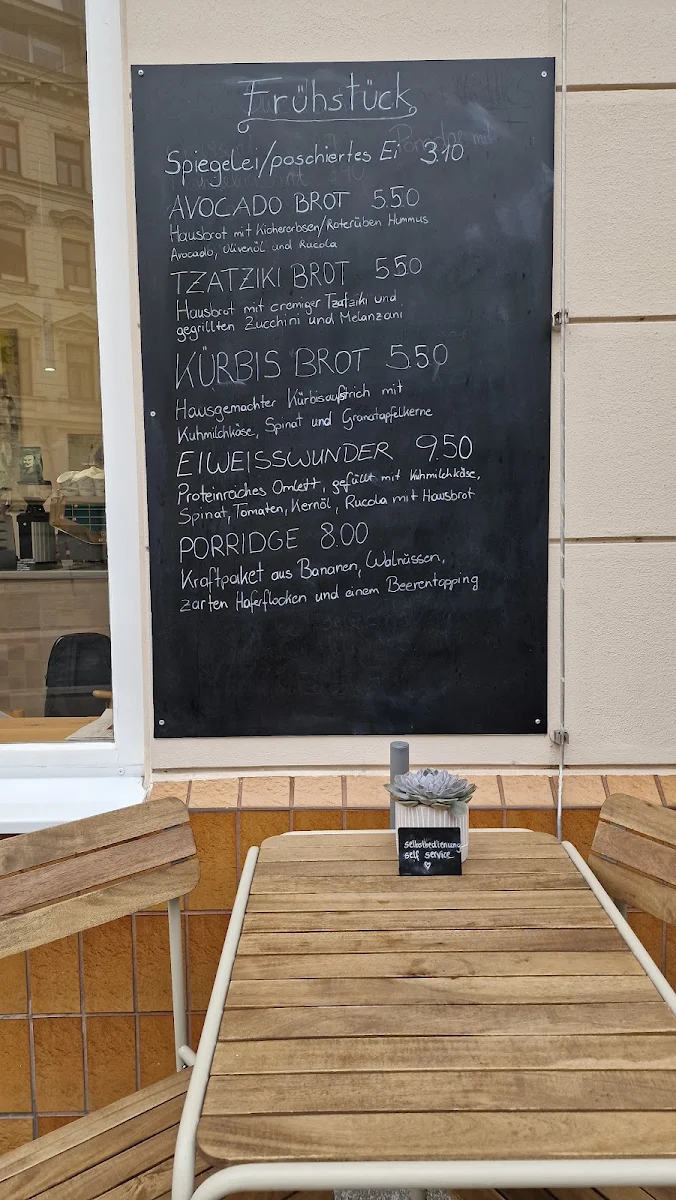 Frühstück
Spiegelei/poschiertes Ei 3.10
AVOCADO BROT 5.50
Hausbrot mit Kichererbsen/Roterüben Hummus
Avocado, Olivenöl und Rucola
TZATZIKI BROT 5.50
Hausbrot mit cremiger Tzatziki und
gegrillten Zucchini und Melanzani
KÜRBIS BROT 5.50
Hausgemachter Kürbisaufstrich mit
Kuhmilchkäse, Spinat und Granatapfelkerne
EIWEISSWUNDER 9.50
Proteinreiches Omlett, gefüllt mit Kuhmilchkäse,
Spinat, Tomaten, Kernöl, Rucola mit Hausbrot
PORRIDGE 8.00
Kraftpaket aus Bananen, Walnüssen,
zarten Haferflocken und einem Beerentopping
selbstbedienung
self service